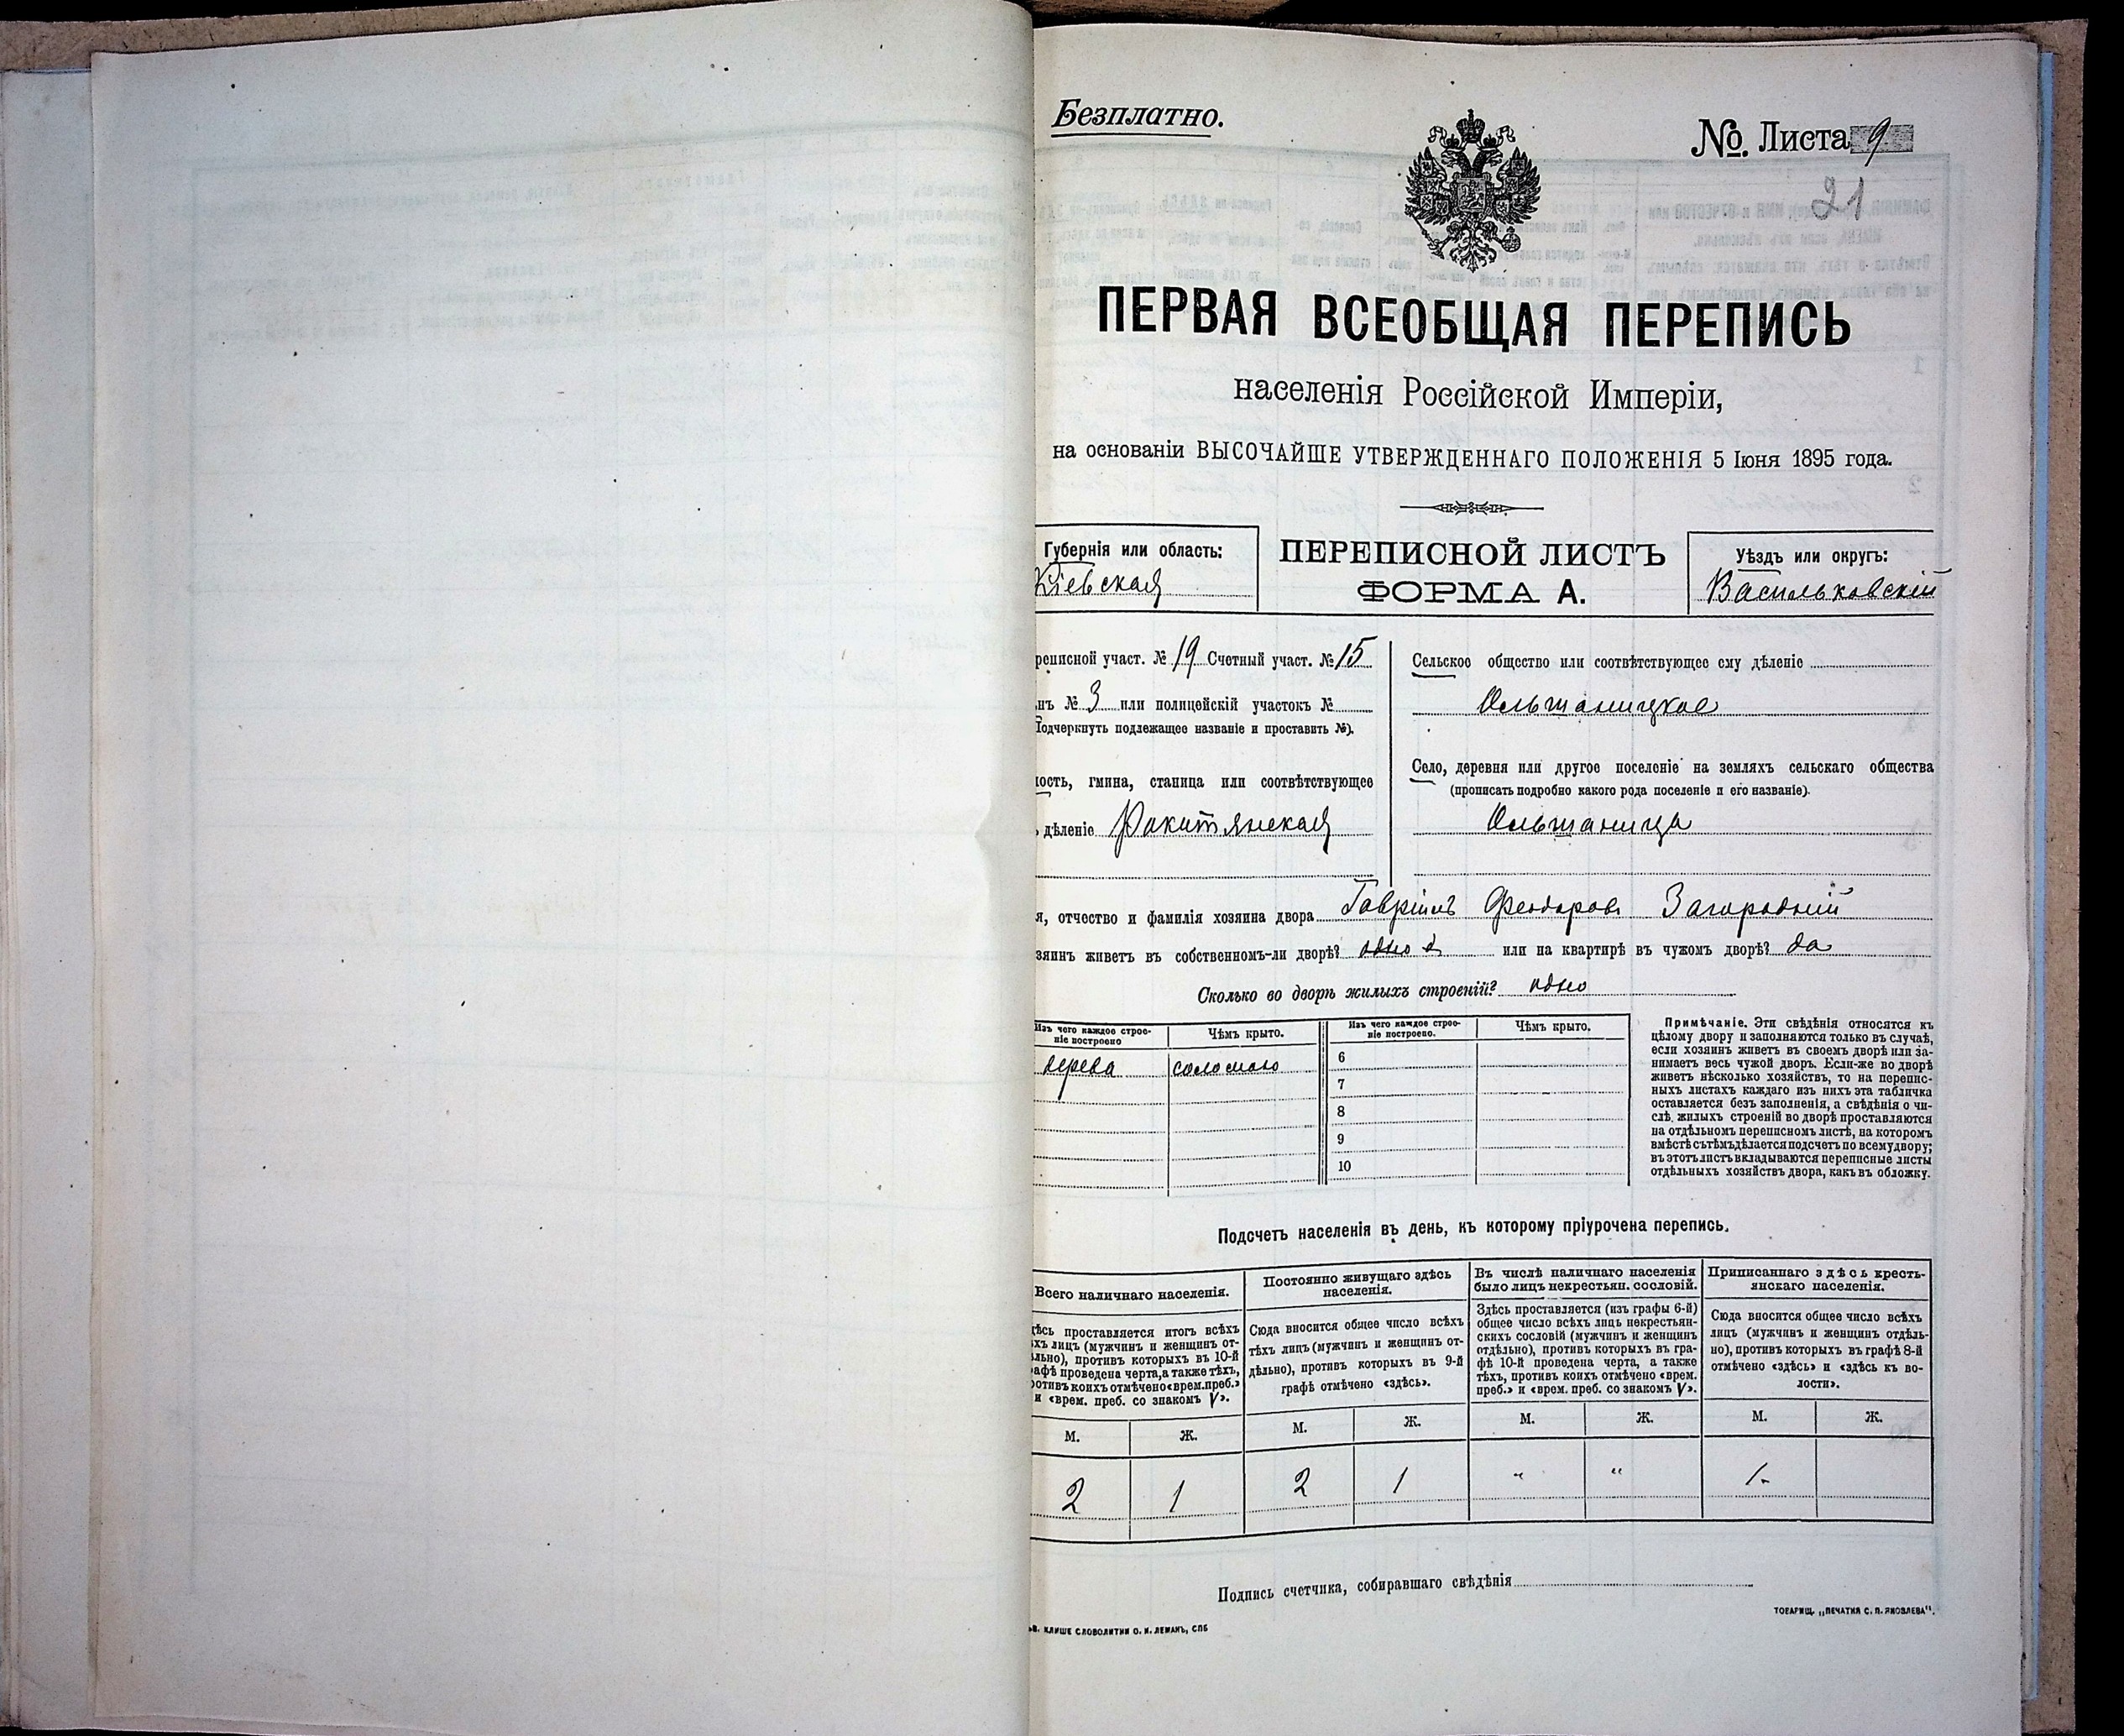 Безплатно.
№. Листа 9
21
ПЕРВАЯ ВСЕОБЩАЯ ПЕРЕПИСЬ
населенія Россійской Имперіи,
на основаніи ВЫСОЧАЙШЕ УТВЕРЖДЕННАГО ПОЛОЖЕНІЯ 5 Іюня 1895 года.
Губернія или область:
Кіевская
ПЕРЕПИСНОЙ ЛИСТЪ
ФОРМА А.
Уѣздъ или округъ:
Васильковскій
реписной участ. № 19 Счетный участ. № 15
нъ № 3 или полицейскій участокъ №
Подчеркнуть подлежащее названіе и проставить №).
ость, гмина, станица или соотвѣтствующее
дѣленіе Рокитянская
Сельское общество или соотвѣтствующее ему дѣленіе
Ольшаницкое
Село, деревня или другое поселеніе на земляхъ сельскаго общества
(прописать подробно какого рода поселеніе и его названіе).
Ольшаница
я, отчество и фамилія хозяина двора Гавріилъ Феодоровъ Загородний
зяинъ живетъ въ собственномъ-ли дворѣ? или на квартирѣ въ чужомъ дворѣ? да
Сколько во дворѣ жилыхъ строеній? одно
Изъ чего каждое строе-
ніе построено
Чѣмъ крыто.
Изъ чего каждое строе-
ніе построено.
Чѣмъ крыто.
дерева соломою
6
7
8
9
10
Примѣчаніе. Эти свѣдѣнія относятся къ
цѣлому двору и заполняются только въ случаѣ,
если хозяинъ живетъ въ своемъ дворѣ или за-
нимаетъ весь чужой дворъ. Если-же во дворѣ
живетъ нѣсколько хозяйствъ, то на перепис-
ныхъ листахъ каждаго изъ нихъ эта табличка
оставляется безъ заполненія, а свѣдѣнія о чи-
слѣ жилыхъ строеній во дворѣ проставляются
на отдѣльномъ переписномъ листѣ, на которомъ
вмѣстѣ съ тѣмъ дѣлается подсчетъ по всему двору;
въ этотъ листъ вкладываются переписные листы
отдѣльныхъ хозяйствъ двора, какъ въ обложку.
Подсчетъ населенія въ день, къ которому пріурочена перепись.
Всего наличнаго населенія.
дѣсь проставляется итогъ всѣхъ
хъ лицъ (мужчинъ и женщинъ от-
льно), противъ которыхъ въ 10-й
афѣ проведена черта, а также тѣхъ,
отивъ коихъ отмѣчено «врем. преб.»
и «врем. преб. со знакомъ V».
М. Ж.
2 1
Постоянно живущаго здѣсь
населенія.
Сюда вносится общее число всѣхъ
тѣхъ лицъ (мужчинъ и женщинъ от-
дѣльно), противъ которыхъ въ 9-й
графѣ отмѣчено «здѣсь».
М. Ж.
2 1
Въ числѣ наличнаго населенія
было лицъ некрестьян. сословій.
Здѣсь проставляется (изъ графы 6-й)
общее число всѣхъ лицъ некрестьян-
скихъ сословій (мужчинъ и женщинъ
отдѣльно), противъ которыхъ въ гра-
фѣ 10-й проведена черта, а также
тѣхъ, противъ коихъ отмѣчено «врем.
преб.» и «врем. преб. со знакомъ V».
М. Ж.
" "
Приписаннаго здѣсь кресть-
янскаго населенія.
Сюда вносится общее число всѣхъ
лицъ (мужчинъ и женщинъ отдѣль-
но), противъ которыхъ въ графѣ 8-й
отмѣчено «здѣсь» и «здѣсь къ во-
лости».
М. Ж.
1 -
Подпись счетчика, собиравшаго свѣдѣнія
КЛИШЕ СЛОВОЛИТНИ О. И. ЛЕМАНЪ, СПБ
ТОВАРИЩ. „ПЕЧАТНЯ С. П. ЯКОВЛЕВА".